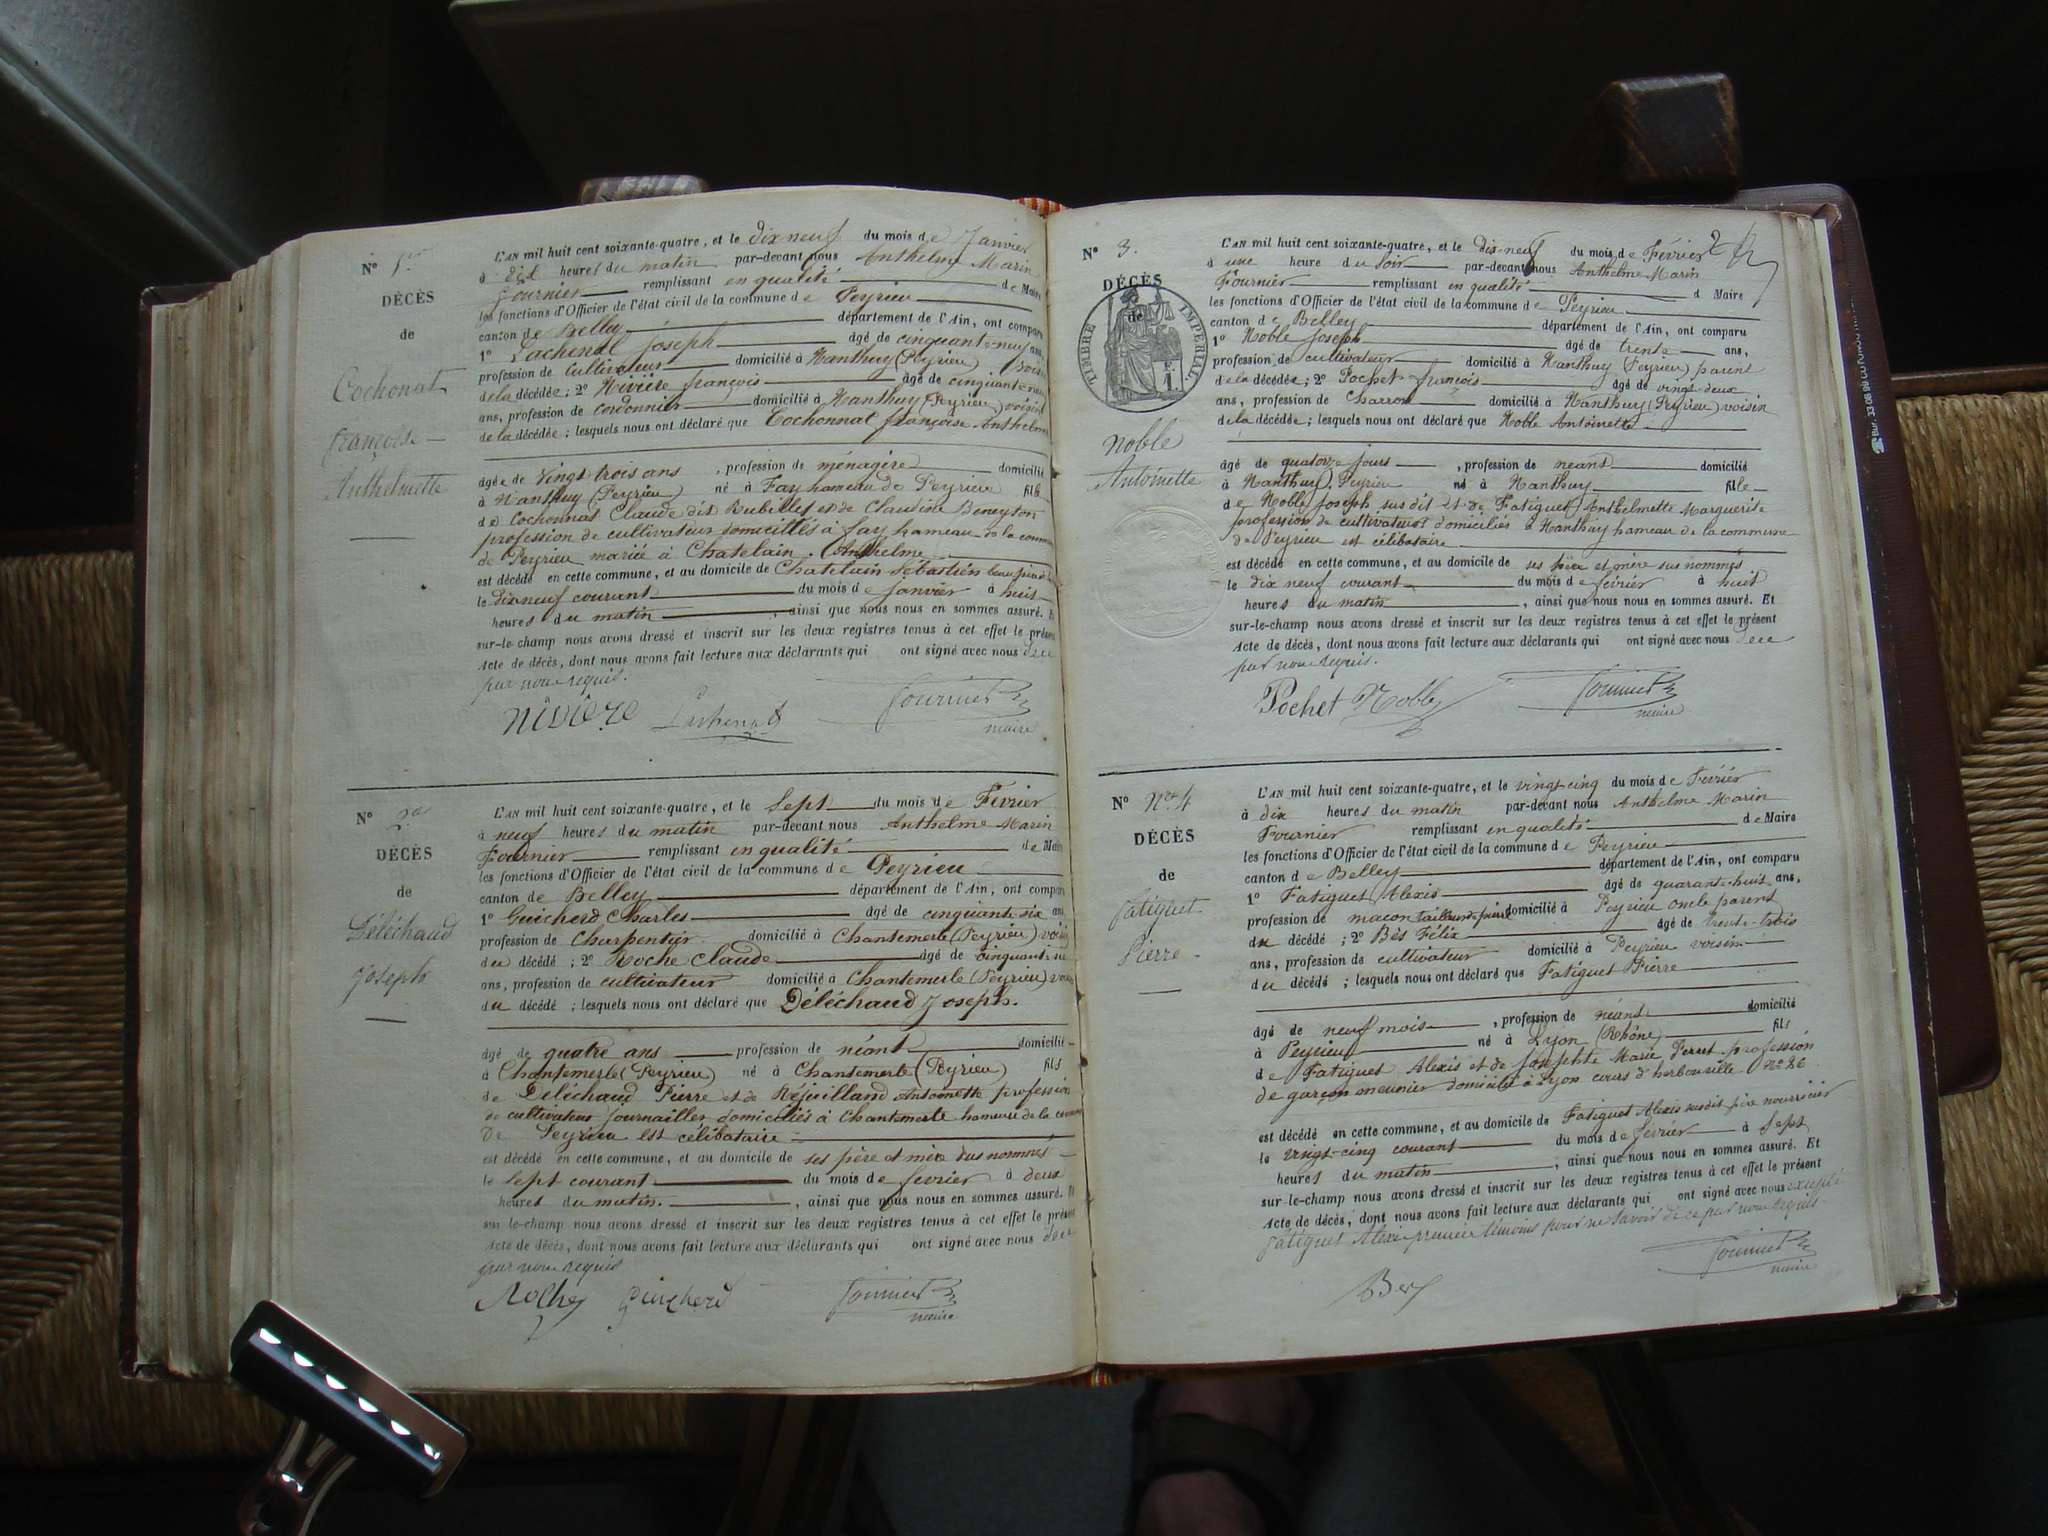 N° 1er
DÉCÈS
de
Cochonat
françoise
Anthelmette
L'AN mil huit cent soixante-quatre, et le dix neuf du mois de Janvier
à dix heures du matin par-devant nous Anthelme Marin
Fournier remplissant en qualité de Maire
les fonctions d'Officier de l'état civil de la commune de Peyrieu
canton de Belley département de l'Ain, ont comparu
1° Lachenal Joseph âgé de cinquante-neuf ans,
profession de cultivateur domicilié à Nanthuy (Peyrieu)
de la décédée; 2° Nivière françois âgé de cinquante
ans, profession de cordonnier domicilié à Nanthuy (Peyrieu) voisin
de la décédée; lesquels nous ont déclaré que Cochonnat françoise Anthelm
âgée de vingt trois ans, profession de ménagère domicilié
à Nanthuy (Peyrieu) né à Fay hameau de Peyrieu fille
de Cochonnat Claude dit Rubilles et de Claudine Beneyton
profession de cultivateur domiciliés à fay hameau de la commune
de Peyrieu mariée à Chatelain Anthelme
est décédé en cette commune, et au domicile de Chatelain Sébastien beau père
le dix neuf courant du mois de janvier à huit
heures du matin, ainsi que nous nous en sommes assuré. Et
sur-le-champ nous avons dressé et inscrit sur les deux registres tenus à cet effet le présent
Acte de décès, dont nous avons fait lecture aux déclarants qui ont signé avec nous de ce
par nous requis.
Nivière Lachenal Fournier
maire
N° 2
DÉCÈS
de
Déléchaud
Joseph
L'AN mil huit cent soixante-quatre, et le Sept du mois de Février
à neuf heures du matin par-devant nous Anthelme Marin
Fournier remplissant en qualité de Maire
les fonctions d'Officier de l'état civil de la commune de Peyrieu
canton de Belley département de l'Ain, ont comparu
1° Guicherd Charles âgé de cinquante six ans
profession de Charpentier domicilié à Chantemerle (Peyrieu) voisin
du décédé; 2° Roche Claude âgé de cinquante
ans, profession de cultivateur domicilié à Chantemerle (Peyrieu)
du décédé; lesquels nous ont déclaré que Déléchaud Joseph.
âgé de quatre ans profession de néant domicilié
à Chantemerle (Peyrieu) né à Chantemerle (Peyrieu) fils
de Déléchaud Pierre et de Antoinette profession
de cultivateur journaliers domiciliés à Chantemerle hameau de la commune
De Peyrieu est célibataire
est décédé en cette commune, et au domicile de ses père et mère dus nommés
le sept courant du mois de février à deux
heures du matin., ainsi que nous nous en sommes assuré. Et
sur le-champ nous avons dressé et inscrit sur les deux registres tenus à cet effet le présent
Acte de décès, dont nous avons fait lecture aux déclarants qui ont signé avec nous de ce
par nous requis
Roche Guicherd Fournier
maire
2
N° 3.
DÉCÈS
de
TIMBRE IMPÉRIAL
F.
1.
Noble
Antoinette
L'AN mil huit cent soixante-quatre, et le dix-neuf du mois de Février
à une heure du soir par-devant nous Anthelme Marin
Fournier remplissant en qualité d Maire
les fonctions d'Officier de l'état civil de la commune de Peyrieu
canton de Belley département de l'Ain, ont comparu
1° Noble Joseph âgé de trente ans,
profession de cultivateur domicilié à Nanthuy (Peyrieu) parent
de la décédée; 2° Pochet françois âgé de vingt deux
ans, profession de Charron domicilié à Nanthuy (Peyrieu) voisin
de la décédée; lesquels nous ont déclaré que Noble Antoinette
âgé de quatorze jours, profession de néant domicilié
à Nanthuy). Peyrieu né à Nanthuy fille
de Noble Joseph sus dit et de Fatiguet Anthelmette Marguerite
profession de cultivateurs domiciliés à Nanthuy hameau de la commune
de Peyrieu est célibataire
est décédé en cette commune, et au domicile de ses père et mère sus nommés
le dix neuf courant du mois de février à huit
heures du matin, ainsi que nous nous en sommes assuré. Et
sur-le-champ nous avons dressé et inscrit sur les deux registres tenus à cet effet le présent
Acte de décès, dont nous avons fait lecture aux déclarants qui ont signé avec nous de ce
par nous requis.
Pochet Noble Fournier
maire
N° N° 4
DÉCÈS
de
fatiguet
Pierre
L'AN mil huit cent soixante-quatre, et le vingt-cinq du mois de Février
à dix heures du matin par-devant nous Anthelme Marin
Fournier remplissant en qualité de Maire
les fonctions d'Officier de l'état civil de la commune de Peyrieu
canton de Belley département de l'Ain, ont comparu
1° Fatiguet Alexis âgé de quarante-huit ans,
profession de maçon tailleur de pierre domicilié à Peyrieu oncle parent
du décédé; 2° Bés Félix âgé de trente-trois
ans, profession de cultivateur domicilié à Peyrieu voisin
du décédé; lesquels nous ont déclaré que Fatiguet Pierre
âgé de neuf mois, profession de néant domicilié
à Peyrieu né à Lyon (Rhône) fils
de Fatiguet Alexis et de Josephte Marie Perret profession
de garçon meunier domicilié à Lyon cours d'herbouville N° 26
est décédé en cette commune, et au domicile de Fatiguet Alexis susdit père nourricier
le vingt-cinq courant du mois de février à sept
heures du matin, ainsi que nous nous en sommes assuré. Et
sur-le-champ nous avons dressé et inscrit sur les deux registres tenus à cet effet le présent
Acte de décès, dont nous avons fait lecture aux déclarants qui ont signé avec nous excepté
fatiguet Alexis premier témoins pour ne savoir de ce par nous requis
Bes Fournier
maire